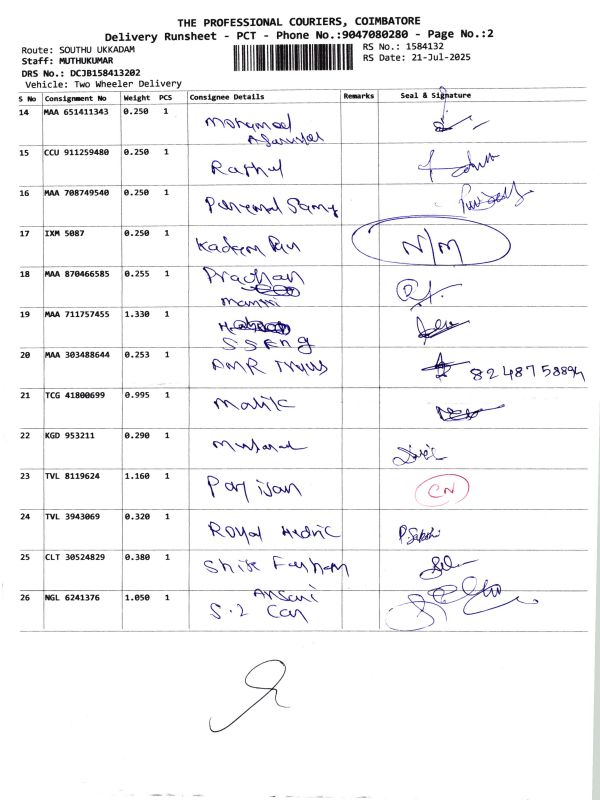 THE PROFESSIONAL COURIERS, COIMBATORE
Delivery Runsheet - PCT - Phone No.:9047080280 - Page No.:2
Route: SOUTHU UKKADAM
RS No.: 1584132
Staff: MUTHUKUMAR
RS Date: 21-Jul-2025
DRS No.: DCJB158413202
Vehicle: Two Wheeler Delivery
S No Consignment No Weight PCS Consignee Details Remarks Seal & Signature
14 MAA 651411343 0.250 1 Mohamed
15 CCU 911259480 0.250 1 Rathul
16 MAA 708749540 0.250 1 Samy
17 IXM 5087 0.250 1 Kadeem N/M
18 MAA 870466585 0.255 1 Pradhan
19 MAA 711757455 1.330 1
SSEng
20 MAA 303488644 0.253 1 AMR 8248758894
21 TCG 41800699 0.995 1 Malik
22 KGD 953211 0.290 1
23 TVL 8119624 1.160 1 CN
24 TVL 3943069 0.320 1 Royal
25 CLT 30524829 0.380 1
26 NGL 6241376 1.050 1 Ansari
S.2 Car